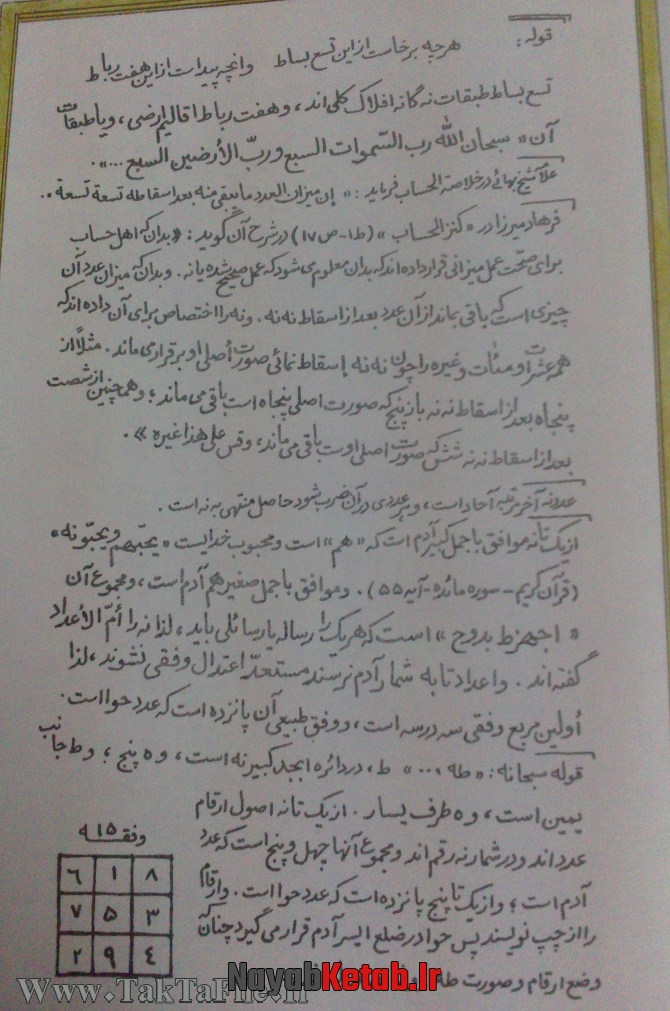 قوله: هرچه برخاست از این تسع بساط وانچه پیداست از این هفت رباط
تسع بساط طبقات نه گانه افلاک کلی اند، و هفت رباط اقالیم ارضی، و یا طبقات
آن « سبحان الله رب السّموات السبع و ربّ الأرضین السبع ...».
علّامه شیخ بهائی در خلاصة الحساب فرماید: « إن میزان العدد ما یبقی منه بعد اسقاطه تسعة تسعة ».
فرهاد میرزا در «کنز الحساب» (ط۱-ص۱۷) در شرح آن گوید: «بدان که اهل حساب
برای صحّت عمل میزانی قرار داده اند که بدان معلوم می شود که عمل صحیح شده یا نه. و بدان که میزان عدد آن
چیزی است که باقی بماند از آن عدد بعد از اسقاط نه نه. و نه را اختصاص برای آن داده اند که
همه عشرات و مئات و غیره را چون نه نه إسقاط نمائی صورت أصلی او برقرار می ماند. مثلاً از
پنجاه بعد از اسقاط نه نه باز پنج که صورت اصلی پنجاه است باقی می ماند؛ و همچنین از شصت
بعد از اسقاط نه نه شش که صورت اصلی اوست باقی می ماند، و قس علی هذا غیره ».
عدد نه آخر مرتبه آحاد است، و هر عددی در آن ضرب شود حاصل منتهی به نه است.
از یک تا نه موافق با جمل کبیر آدم است که «هم» است و محبوب خدایست «یحبّهم و یحبّونه»
(قرآن کریم - سوره مائده - آیه ۵۵). و موافق با جمل صغیر هم آدم است، و مجموع آن
« اجهزط بدوح » است که هر یک را رساله یا رسائلی باید، لذا نه را أمّ الأعداد
گفته اند. و اعداد تا به شمار آدم نرسند مستعدّ اعتدال وفقی نشوند، لذا
أولین مربع وفقی سه در سه است، و وفق طبیعی آن پانزده است که عدد حوا است.
قوله سبحانه: « طه ... » ط، در دائره ابجد کبیر نه است، و ه پنج؛ و ط جانب
یمین است، و ه طرف یسار. از یک تا نه اصول ارقام
عدد اند و در شمار نه رقم اند و مجموع آنها چهل و پنج است که عدد
آدم است؛ و از یک تا پنج پانزده است که عدد حوا است. و ارقام
را از چپ نویسند پس حوا در ضلع ایسر آدم قرار می گیرد چنانکه
وضع ارقام و صورت طه
وفقه ۱۵
۶ ۱ ۸
۷ ۵ ۳
۲ ۹ ۴
NayabKetab.Ir
Www.TakTaFile.Ir